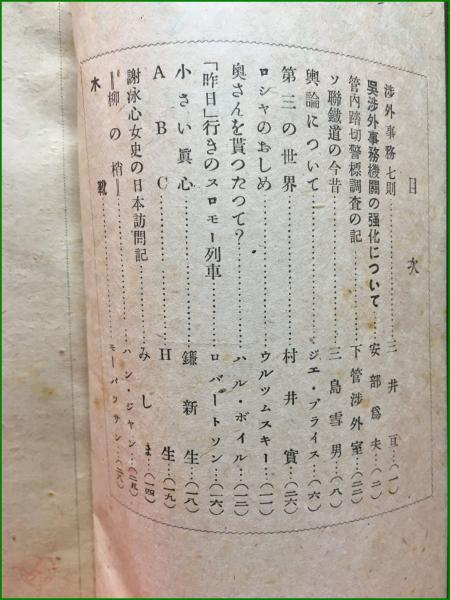 目次
涉外事務七則……三井亘…(一)
吳涉外事務機關の强化について……安部爲夫…(二)
管內踏切警標調査の記……下管涉外室…(二二)
ソ聯鐵道の今昔……三島雪男…(八)
輿論について……ジエ・プライス…(六)
第三の世界……村井實…(二六)
ロシヤのおしめ……ウルツムスキー…(一一)
奧さんを貰つたつて?……ハル・ボイル…(一二)
「昨日」行きのスロモー列車……ロバートソン…(一六)
小さい眞心……鎌新生…(一八)
ABC……H生…(一九)
謝泳心女史の日本訪問記……みしま…(一四)
柳の梢……ハン・ジャン…(二五)
木靴……モーパッサン…(二八)